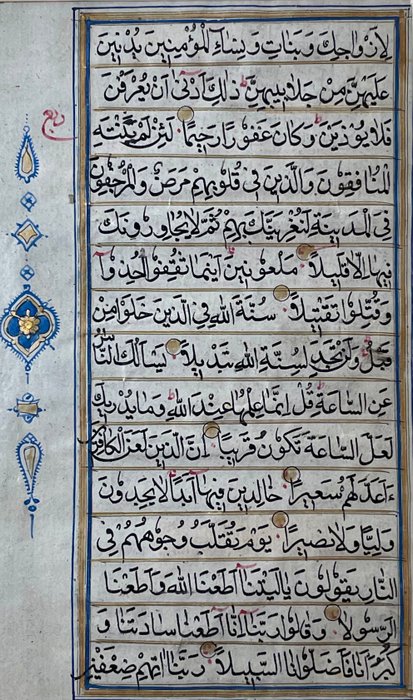 لِأَزْوَاجِكَ وَبَنَاتِكَ وَنِسَاءِ الْمُؤْمِنِينَ يُدْنِينَ
عَلَيْهِنَّ مِنْ جَلَابِيبِهِنَّ ذَلِكَ أَدْنَى أَنْ يُعْرَفْنَ
فَلَا يُؤْذَيْنَ وَكَانَ اللَّهُ غَفُورًا رَحِيمًا لَئِنْ لَمْ يَنْتَهِ
ربع
الْمُنَافِقُونَ وَالَّذِينَ فِي قُلُوبِهِمْ مَرَضٌ وَالْمُرْجِفُونَ
فِي الْمَدِينَةِ لَنُغْرِيَنَّكَ بِهِمْ ثُمَّ لَا يُجَاوِرُونَكَ
فِيهَا إِلَّا قَلِيلًا مَلْعُونِينَ أَيْنَمَا ثُقِفُوا أُخِذُوا
وَقُتِّلُوا تَقْتِيلًا سُنَّةَ اللَّهِ فِي الَّذِينَ خَلَوْا مِنْ
قَبْلُ وَلَنْ تَجِدَ لِسُنَّةِ اللَّهِ تَبْدِيلًا يَسْأَلُكَ النَّاسُ
عَنِ السَّاعَةِ قُلْ إِنَّمَا عِلْمُهَا عِنْدَ اللَّهِ وَمَا يُدْرِيكَ
لَعَلَّ السَّاعَةَ تَكُونُ قَرِيبًا إِنَّ اللَّهَ لَعَنَ الْكَافِرِينَ
وَأَعَدَّ لَهُمْ سَعِيرًا خَالِدِينَ فِيهَا أَبَدًا لَا يَجِدُونَ
وَلِيًّا وَلَا نَصِيرًا يَوْمَ تُقَلَّبُ وُجُوهُهُمْ فِي
النَّارِ يَقُولُونَ يَا لَيْتَنَا أَطَعْنَا اللَّهَ وَأَطَعْنَا
الرَّسُولَا وَقَالُوا رَبَّنَا إِنَّا أَطَعْنَا سَادَتَنَا وَ
كُبَرَاءَنَا فَأَضَلُّونَا السَّبِيلَا رَبَّنَا آتِهِمْ ضِعْفَيْنِ